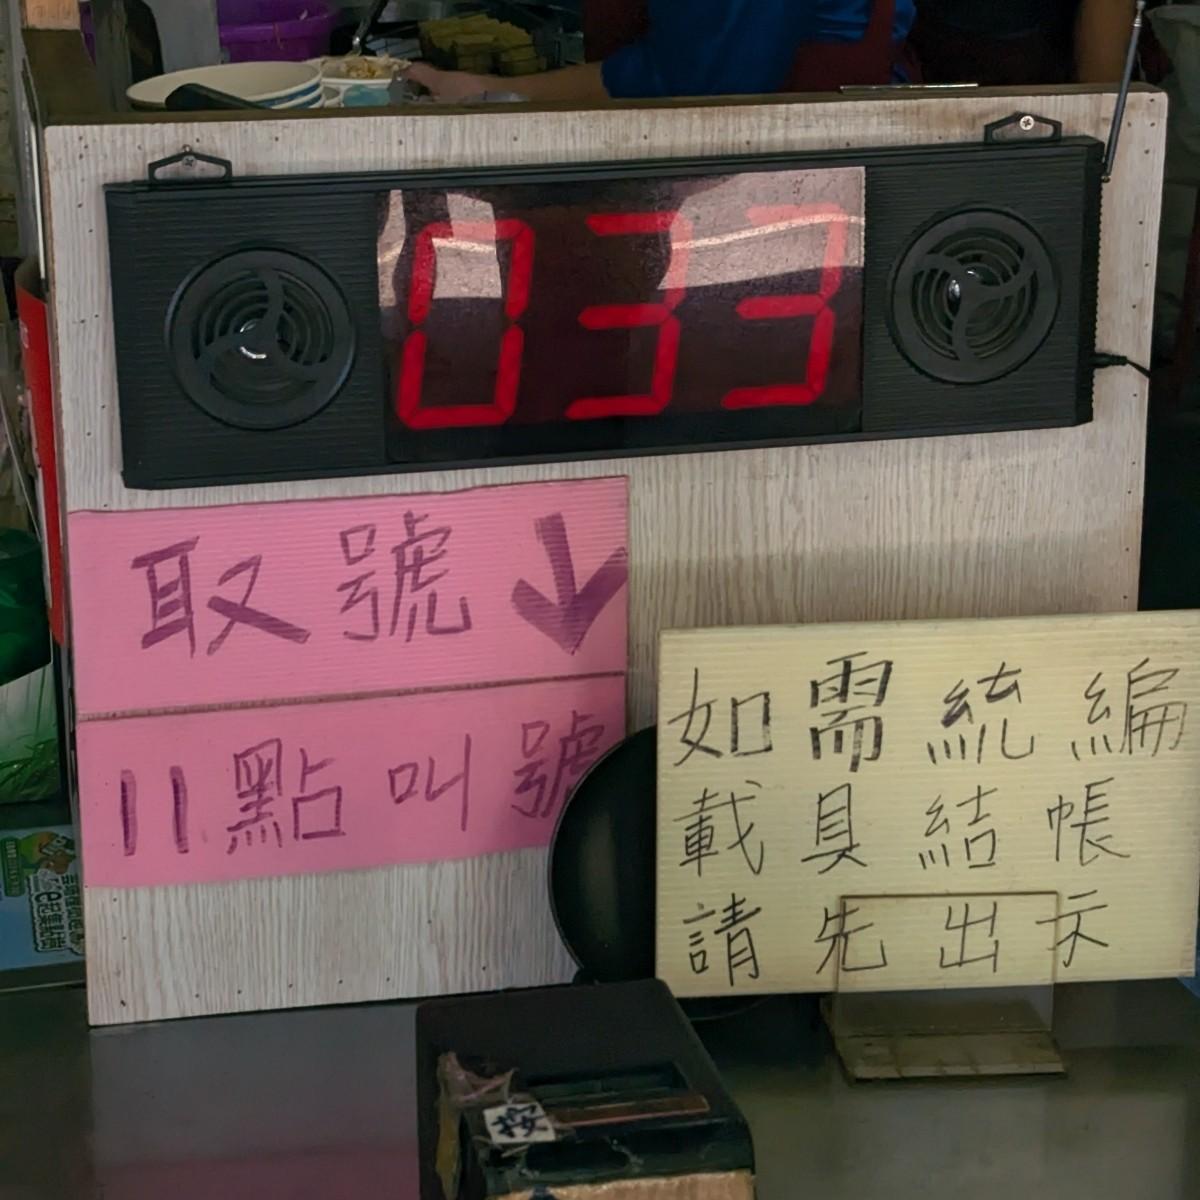 033
取號↓
11點叫號
如需統編
載具結帳
請先出示
按